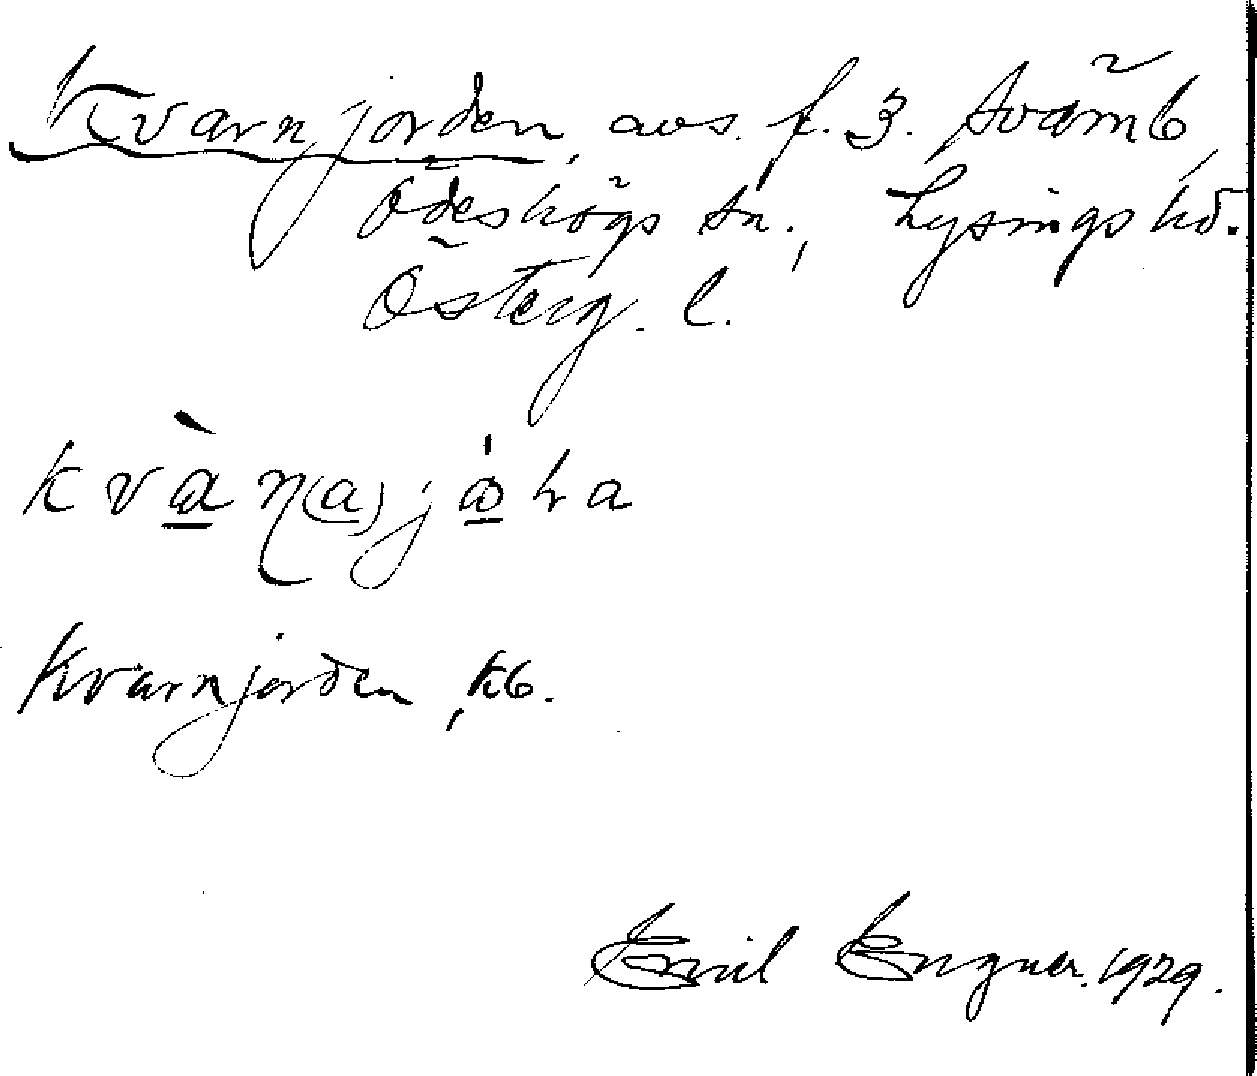 Kvarnjorden, avs. f. 3. Svämb,
Ödeshögs sn., Lysings hd.
Österg. l.
kvàn(a)jớra
Kvarnjorden, kb.
Emil Engner. 1929.